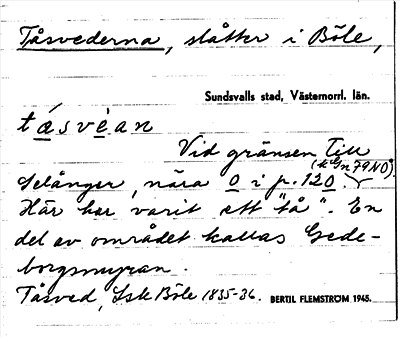 Tåsvederna, slåtter i Böle,
Sundsvalls stad, Västernorrl. län.
tá̱svè̱an
Vid gränsen till
(k Gn 79 NO).
Selånger, nära 0̲ i p. 120̲.
Här har varit ett "tå". En
del av området kallas Gede-
borgsmyran.
Tåsved, Lsk Böle 1835-36. BERTIL FLEMSTRÖM 1945.